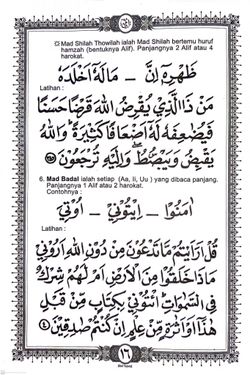 Mad Shilah Thowilah ialah Mad Shilah bertemu huruf
hamzah (bentuknya Alif). Panjangnya 2 Alif atau 4
harokat.
ظَهْرَهٗٓ اِنَّ – مَالَهٗٓ اَخْلَدَهٗ
Latihan :
مَنْ ذَا الَّذِيْ يُقْرِضُ اللهَ قَرْضًا حَسَنًا
فَيُضٰعِفَهٗ لَهٗٓ اَضْعَافًا كَثِيْرَةً وَاللهُ
يَقْبِضُ وَيَبْصُطُ وَاِلَيْهِ تُرْجَعُوْنَ
6. Mad Badal ialah setiap (Aa, Ii, Uu ) yang dibaca panjang.
Panjangnya 1 Alif atau 2 harokat.
Contohnya :
اٰمَنُوْا – اِيْتُوْنِيْ – اُوْتِيْ
Latihan :
قُلْ اَرَءَيْتُمْ مَا تَدْعُوْنَ مِنْ دُوْنِ اللهِ اَرُوْنِيْ
مَاذَا خَلَقُوْا مِنَ الْاَرْضِ اَمْ لَهُمْ شِرْكٌ
فِى السَّمٰوٰتِ اِيْتُوْنِيْ بِكِتَابٍ مِنْ قَبْلِ
هٰذَآ اَوْ اَثٰرَةٍ مِنْ عِلْمٍ اِنْ كُنْتُمْ صٰدِقِيْنَ
١٦